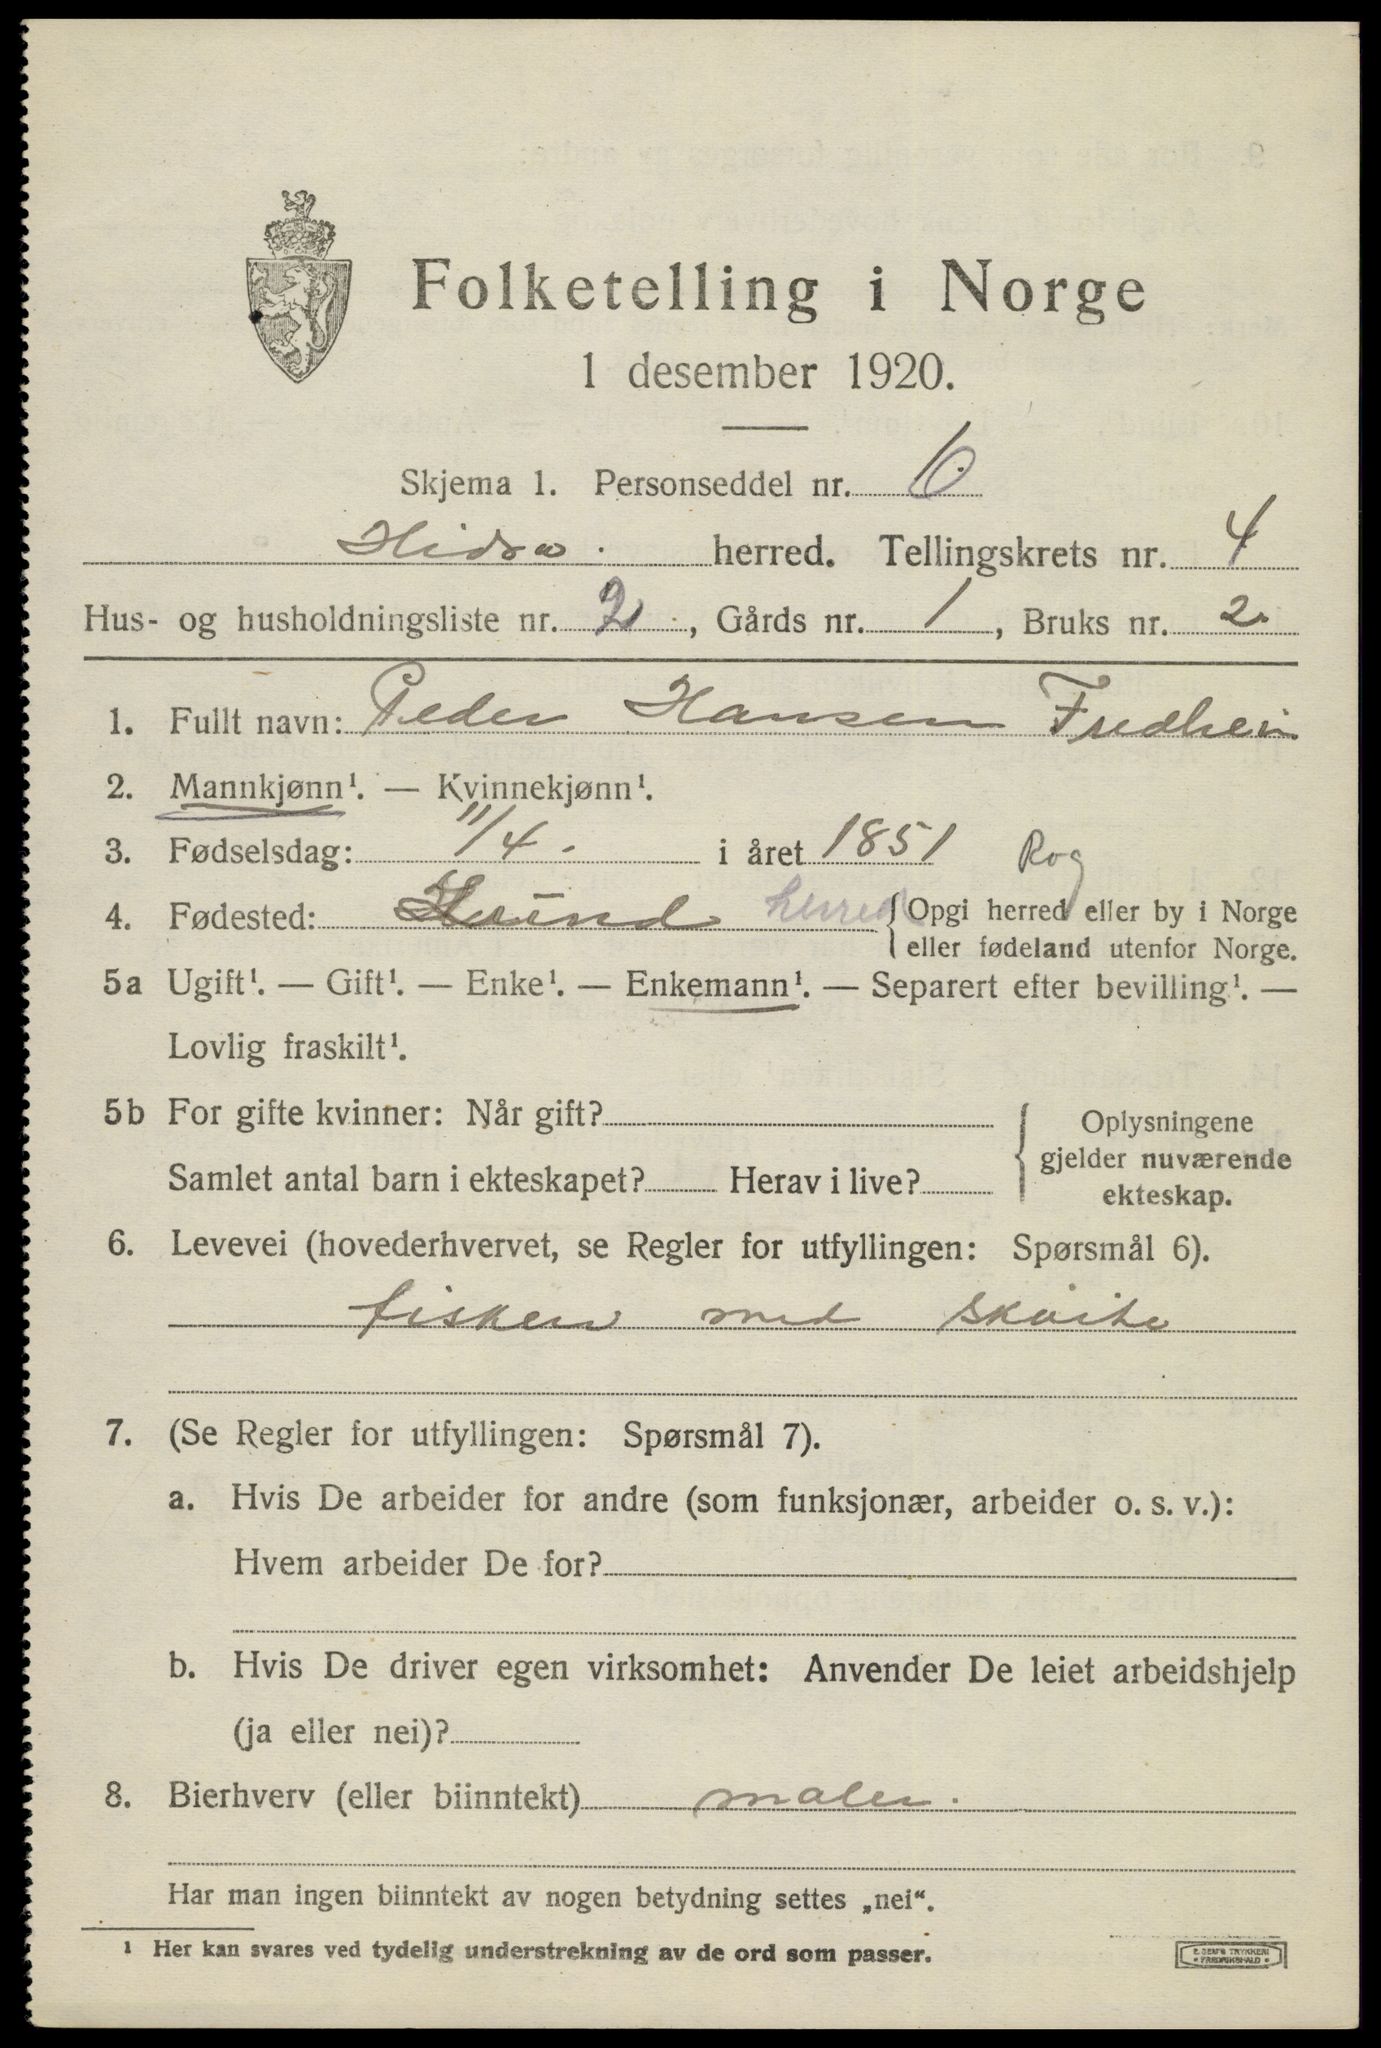 Folketelling i Norge
1 desember 1920.
Skjema 1. Personseddel nr. 6.
Hidra. herred. Tellingskrets nr. 4
Hus- og husholdningsliste nr. 2, Gårds nr. 1, Bruks nr. 2.
1. Fullt navn: Peder Hansen Fredheim
2. Mannkjønn¹. — Kvinnekjønn¹.
3. Fødselsdag: 11/4. i året 1851 Rog
4. Fødested: Lund herred {Opgi herred eller by i Norge
eller fødeland utenfor Norge.
5a Ugift¹. — Gift¹. — Enke¹. — Enkemann¹. — Separert efter bevilling¹. —
Lovlig fraskilt¹.
5b For gifte kvinner: Når gift?
Samlet antal barn i ekteskapet? Herav i live?
Oplysningene
gjelder nuværende
ekteskap.
6. Levevei (hovederhvervet, se Regler for utfyllingen: Spørsmål 6).
fisker med skøite
7. (Se Regler for utfyllingen: Spørsmål 7).
a. Hvis De arbeider for andre (som funksjonær, arbeider o. s. v.):
Hvem arbeider De for?
b. Hvis De driver egen virksomhet: Anvender De leiet arbeidshjelp
(ja eller nei)?
8. Bierhverv (eller biinntekt) maler.
Har man ingen biinntekt av nogen betydning settes „nei“.
¹ Her kan svares ved tydelig understrekning av de ord som passer.
E. SEM'S TRYKKERI
• FREDRIKSHALD •